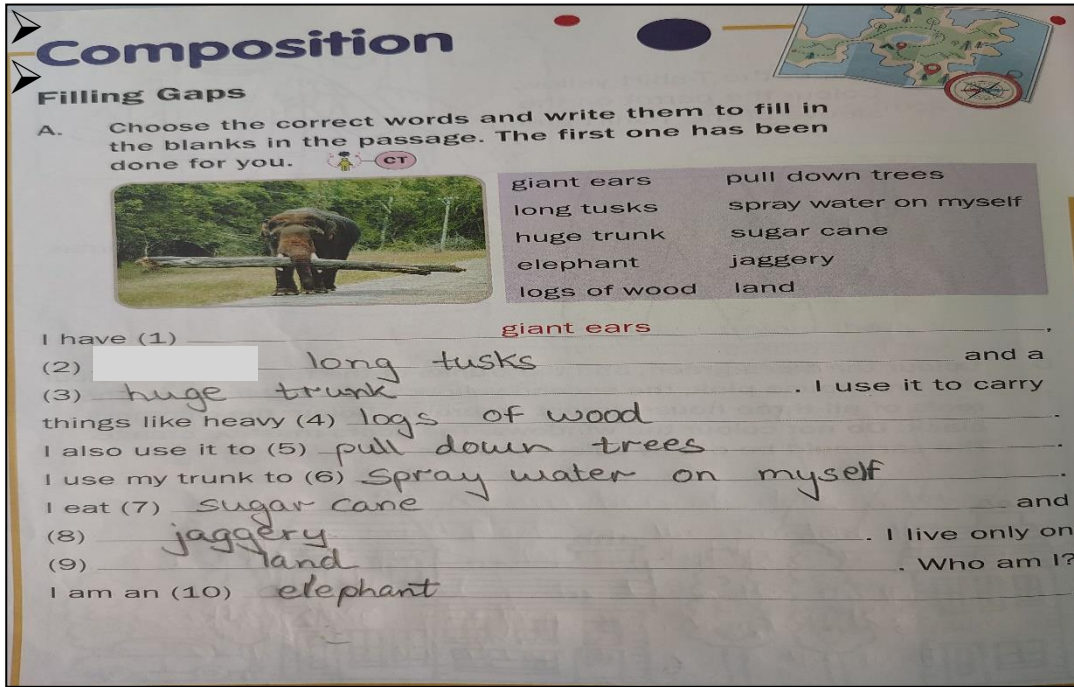 Composition
Filling Gaps
A. Choose the correct words and write them to fill in
the blanks in the passage. The first one has been
done for you. CT
giant ears pull down trees
long tusks spray water on myself
huge trunk sugar cane
elephant jaggery
logs of wood land
I have (1) giant ears ,
(2) long tusks and a
(3) huge trunk . I use it to carry
things like heavy (4) logs of wood .
I also use it to (5) pull down trees .
I use my trunk to (6) Spray water on myself .
I eat (7) sugar cane and
(8) jaggery . I live only on
(9) land . Who am I?
I am an (10) elephant